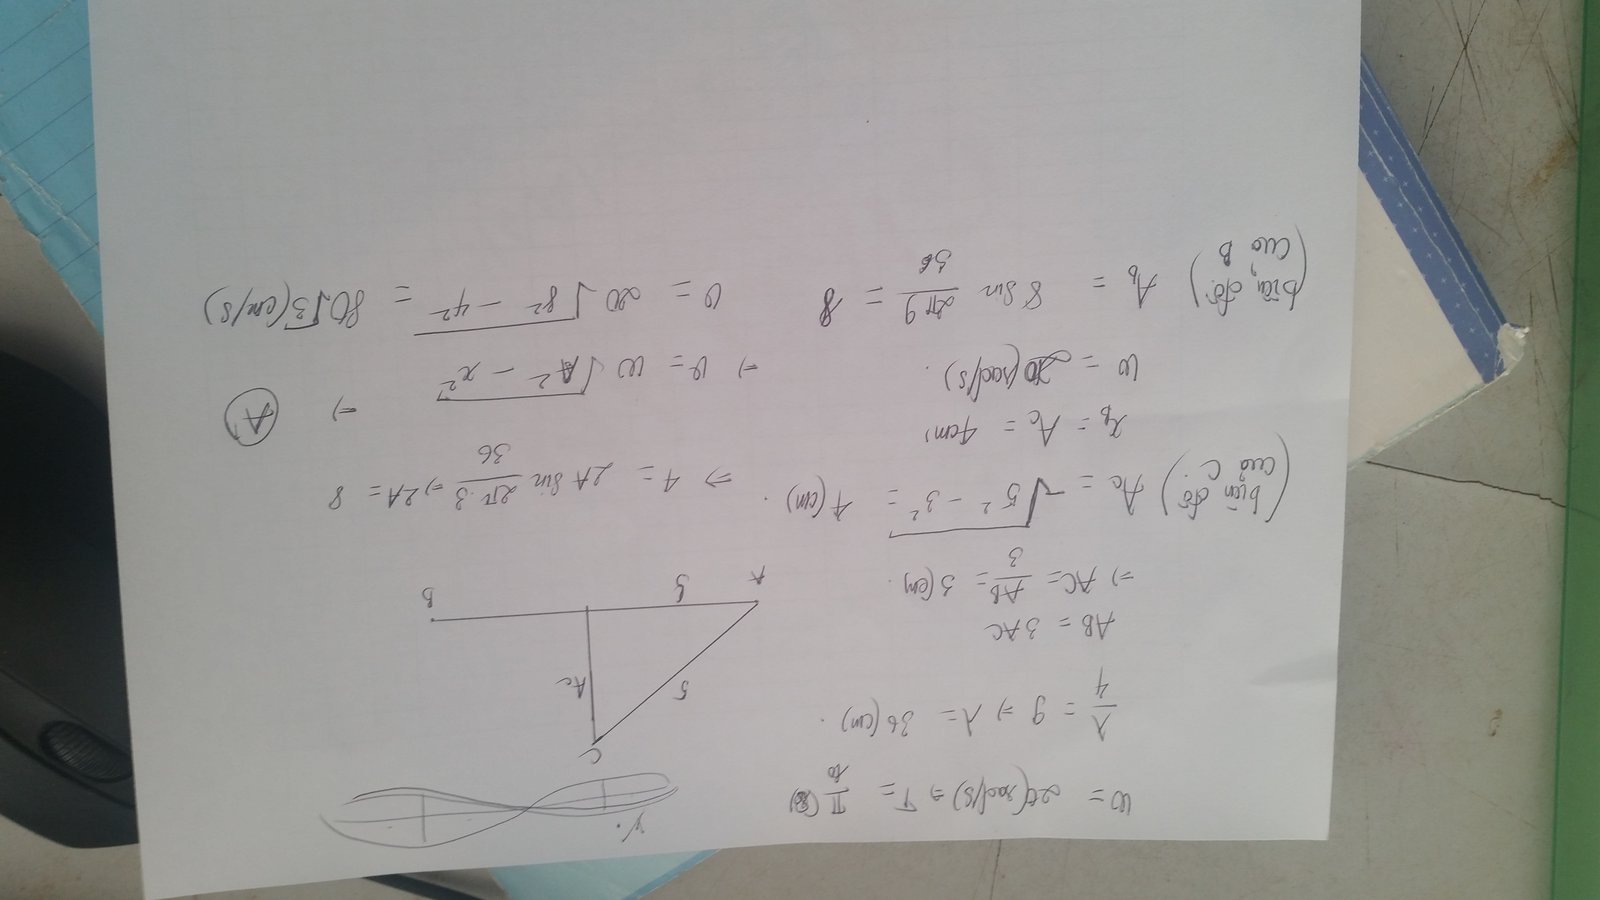 ω = 20(rad/s) ⇒ T = π/10 (s)
λ/4 = 9 ⇒ λ = 36 (cm).
AB = 3AC
⇒ AC = AB/3 = 3 (cm).
C
5
Ac
A
3
B
(biên độ của C) Ac = √5² - 3² = 4 (cm).
⇒ 4 = 2A sin 2π.3/36 ⇒ 2A = 8
x_b = Ac = 4cm,
ω = 20 (rad/s).
⇒ v = ω √A² - x²
⇒ A
(biên độ của B) A_b = 8 sin 2π9/36 = 8
v = 20 √8² - 4² = 80√3 (cm/s)